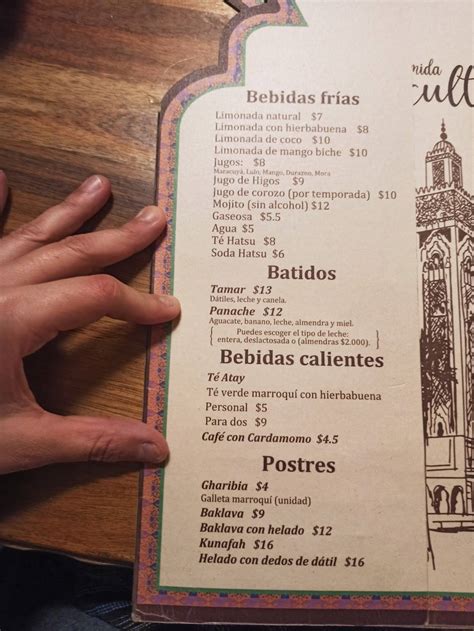 nida
cult
Bebidas frías
Limonada natural $7
Limonada con hierbabuena $8
Limonada de coco $10
Limonada de mango biche $10
Jugos: $8
Maracuyá, Lulo, Mango, Durazno, Mora
Jugo de Higos $9
Jugo de corozo (por temporada) $10
Mojito (sin alcohol) $12
Gaseosa $5.5
Agua $5
Té Hatsu $8
Soda Hatsu $6
Batidos
Tamar $13
Dátiles, leche y canela.
Panache $12
Aguacate, banano, leche, almendra y miel.
{ Puedes escoger el tipo de leche:
entera, deslactosada o (almendras $2.000). }
Bebidas calientes
Té Atay
Té verde marroquí con hierbabuena
Personal $5
Para dos $9
Café con Cardamomo $4.5
Postres
Gharibia $4
Galleta marroquí (unidad)
Baklava $9
Baklava con helado $12
Kunafah $16
Helado con dedos de dátil $16